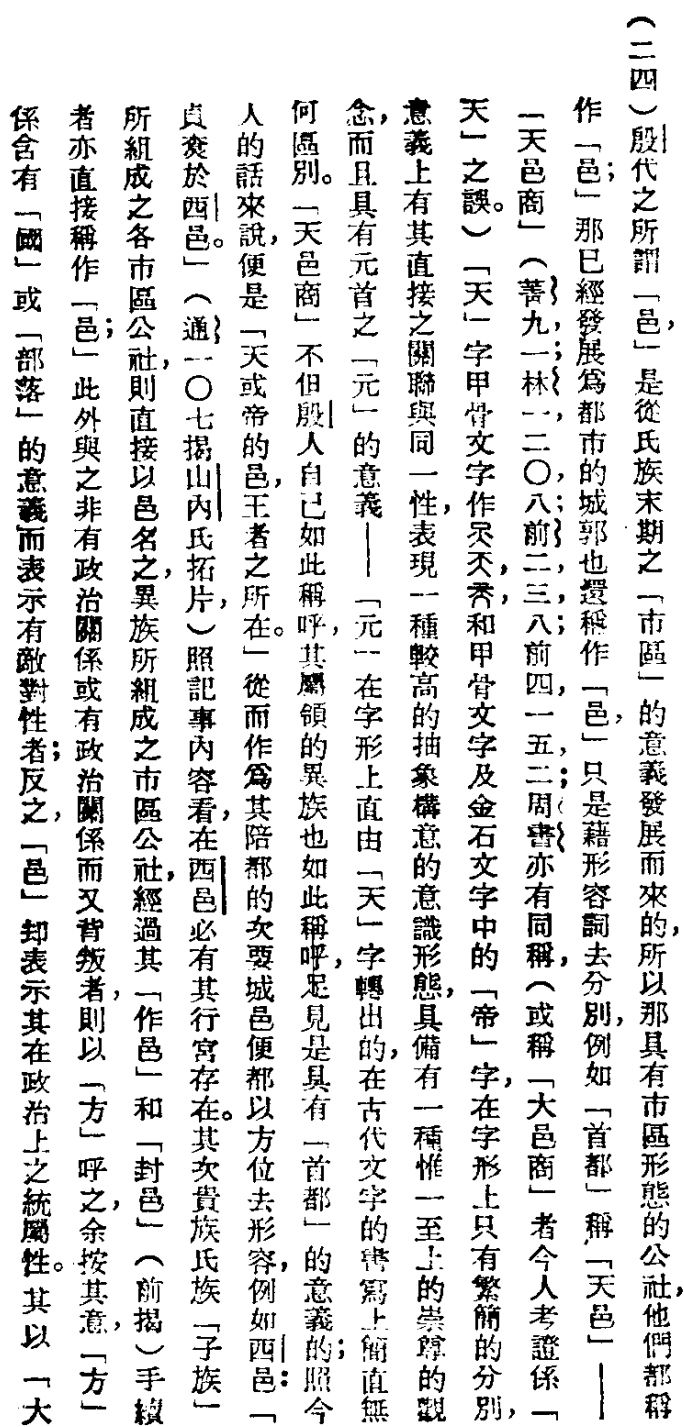 （二四）殷代之所謂「邑，」是從氏族末期之「市區」的意義發展而來的，所以那具有市區形態的公社，他們都稱
作「邑；」那已經發展爲都市的城郭也還稱作「邑，」只是藉形容詞去分別，例如「首都」稱「天邑」——
「天邑商」（菁九一，林一二〇八；前二，三，八；前四，一五，二；周書亦有同稱，（或稱「大邑商」者今人考證係「
天」之誤。）「天」字甲骨文字作，和甲骨文字及金石文字中的「帝」字，在字形上只有繁簡的分別，
意義上有其直接之關聯與同一性，表現一種較高的抽象構意的意識形態，具備有一種惟一至上的崇尊的觀
念，而且具有元首之「元」的意義——「元」在字形上直由「天」字轉出的，在古代文字的書寫上簡直無
何區別。「天邑商」不但殷人自己如此稱呼，其屬領的異族也如此稱呼，足見是具有「首都」的意義的；照今
人的話來說，便是「天或帝的邑，王者之所在。」從而作爲其陪都的次要城邑便都以方位去形容，例如西邑：「
貞𡘇於西邑。」（通一〇七揭山內氏拓片，）照記事內容看，在西邑必有其行宮存在。其次貴族氏族「子族」
所組成之各市區公社，則直接以邑名之，異族所組成之市區公社，經過其「作邑」和「封邑」（前揭）手續
者亦直接稱作「邑；」此外與之非有政治關係或有政治關係而又背叛者，則以「方」呼之，余按其意，「方」
係含有「國」或「部落」的意義而表示有敵對性者；反之，「邑」却表示其在政治上之統屬性。其以「大